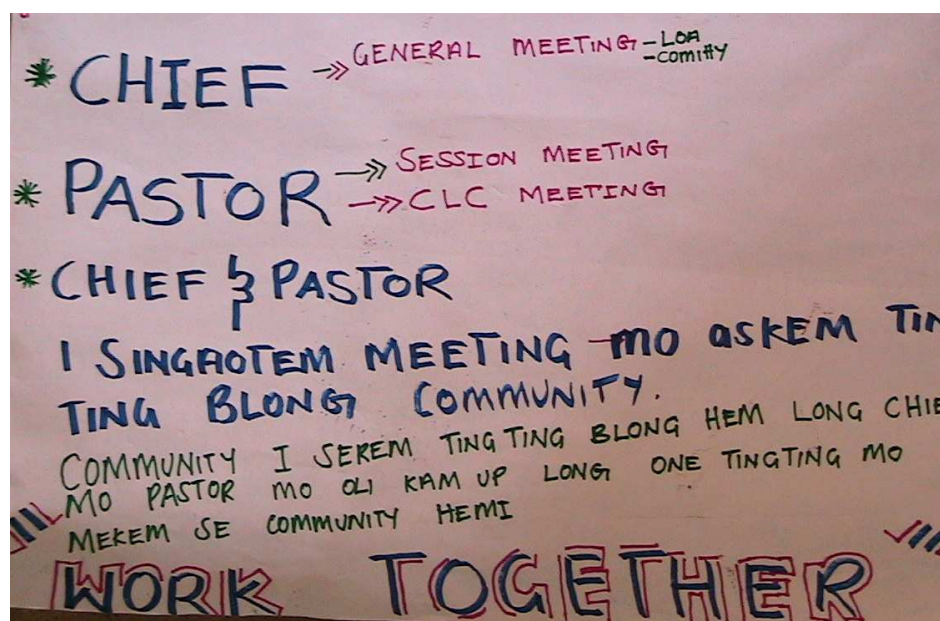 * CHIEF ->> GENERAL MEETING - LOA
- comitty
* PASTOR ->> SESSION MEETING
->> CLC MEETING
* CHIEF & PASTOR
I SINGAOTEM MEETING mo askem TIN
TING BLONG COMMUNITY.
COMMUNITY I SEREM TING TING BLONG HEM LONG CHIE
MO PASTOR mo OLI KAM UP LONG ONE TINGTING MO
MEKEM SE COMMUNITY HEMI
WORK TOGETHER